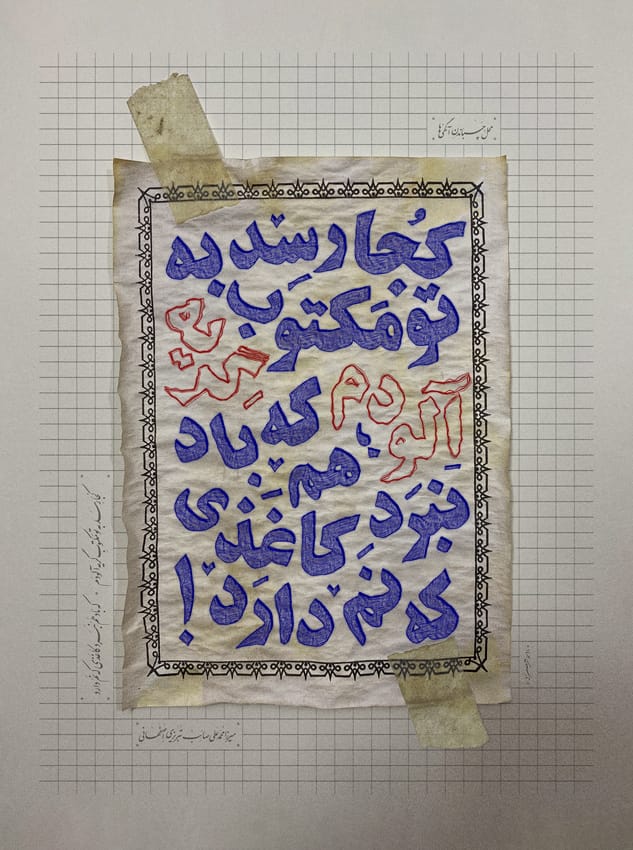 محل چسباندن آگهی‌ها
کُجا رسِد به
تو مَکتوبِ
گریه
آلودم که باد
هم،
نَبَرَد کاغَذی
که نَم دارَد!
کجا رسد به تو مکتوب گریه آلودم • که باد هم نبرد کاغذی که نم دارد
میرزا محمدعلی صائب تبریزی اصفهانی